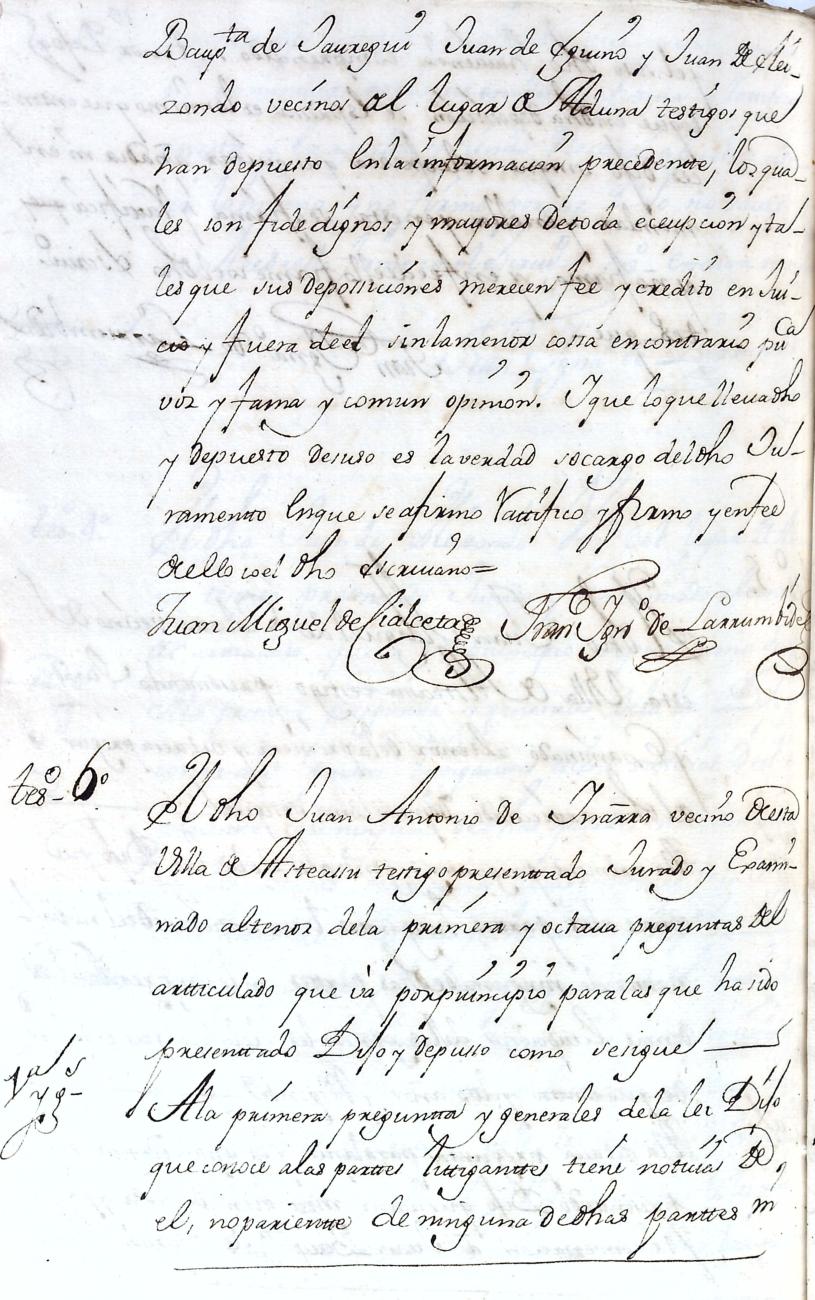 Baupta de Jauregui Juan de Eguino y Juan de Elei-
zondo vecinos del lugar de Aduna testigos que
han depuesto en la informacion precedentte, los qua-
les son fidedignos y mayores de toda ecepcion y ta-
les que sus deposiciones merecen fee y credito en Jui-
cio y fuera de el sin la menor cossa en contrario puca
voz y fama y comun opinion. Y que lo que lleva dho
y depuesto desuso es la verdad so cargo del dho Ju-
ramentto en que se afirmo Rattifico y firmo y en fee
de ello io el dho Escrivano =
Juan Miguel de Cialceta Fran Igno de Larrumbide
teso 6o
El dho Juan Antonio de Inarra vecino de esta
Villa de Asteassu testigo presenttado Jurado y Exami-
nado al tenor de la primera y octava preguntas del
artticulado que va por principio para las que ha sido
presenttado Dijo y depusso como se sigue
1a y gs
A la primera pregunta y generales de la lei Dijo
que conoce a las parttes littiganttes tiene noticia de
el, no parientte de ninguna de dhas parttes ni